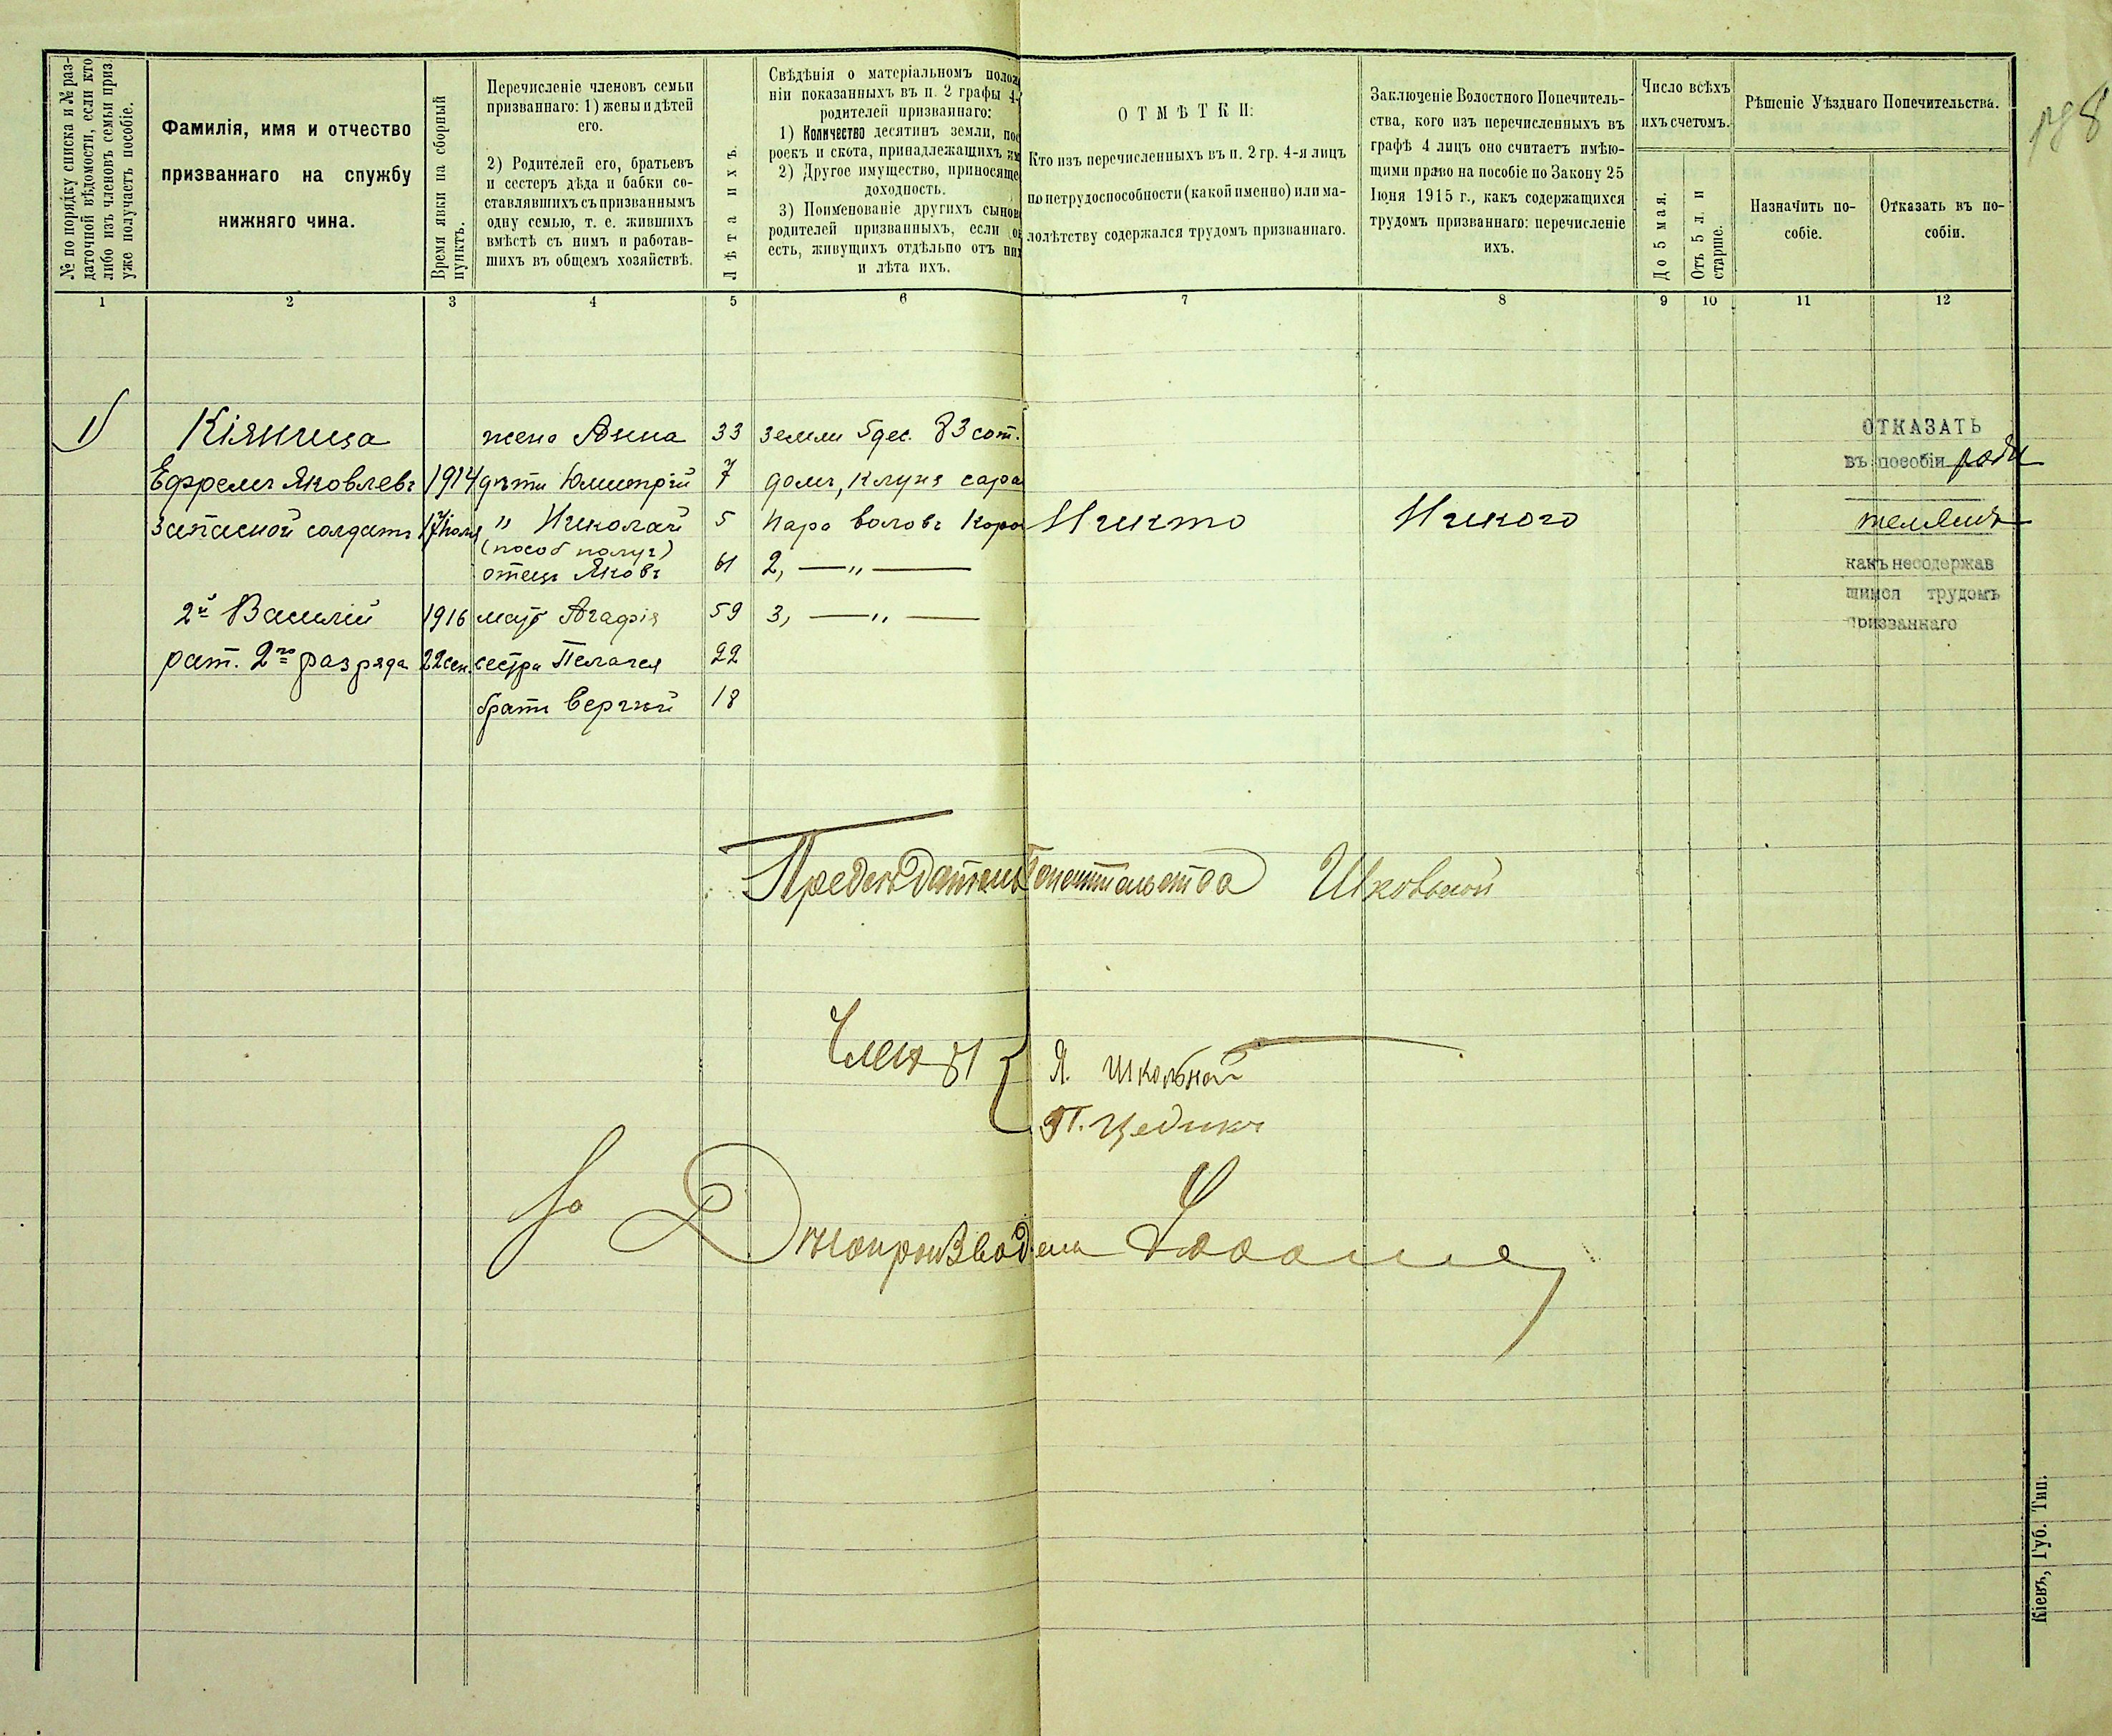 № по порядку списка и № раз-
даточной вѣдомости, если кто
либо изъ членовъ семьи приз.
уже получаетъ пособіе.
Фамилія, имя и отчество
призваннаго на службу
нижняго чина.
Время явки на сборный
пунктъ.
Перечисленіе членовъ семьи
призваннаго: 1) жены и дѣтей
его.
2) Родителей его, братьевъ
и сестеръ дѣда и бабки со-
ставлявшихъ съ призваннымъ
одну семью, т. е. жившихъ
вмѣстѣ съ нимъ и работав-
шихъ въ общемъ хозяйствѣ.
Лѣта ихъ.
Свѣдѣнія о матеріальномъ полож
ніи показанныхъ въ п. 2 графы 4-
родителей призваннаго:
1) Количество десятинъ земли, пос
роекъ и скота, принадлежащихъ им
2) Другое имущество, приносяще
доходность.
3) Поименованіе другихъ сынов
родителей призванныхъ, если он
есть, живущихъ отдѣльно отъ них
и лѣта ихъ.
ОТМѢТКИ:
Кто изъ перечисленныхъ въ п. 2 гр. 4-я лицъ
по нетрудоспособности (какой именно) или ма-
лолѣтству содержался трудомъ призваннаго.
Заключеніе Волостного Попечитель-
ства, кого изъ перечисленныхъ въ
графѣ 4 лицъ оно считаетъ имѣю-
щими право на пособіе по Закону 25
Іюня 1915 г., какъ содержащихся
трудомъ призваннаго: перечисленіе
ихъ.
Число всѣхъ
ихъ счетомъ.
До 5 мая.
Отъ 5 л. и
старше.
Рѣшеніе Уѣзднаго Попечительства.
Назначить по-
собіе.
Отказать въ по-
собіи.
1 2 3 4 5 6 7 8 9 10 11 12
1) Кіяница жена Анна 33 земли 5 дес. 83 сот.
Ефремъ Яковлевъ 1914 дѣти Дмитрій 7 домъ, клуня сара
Запасной солдатъ 17 іюля " Николай 5 пара воловъ Коро Никто Никого
(пособ получ)
отецъ Яковъ 61 2, — " —
2й Василій 1916 мать Агафія 59 3, — " —
рат. 2го разряда 22 сен. сестра Пелагея 22
братъ Сергѣй 18
ОТКАЗАТЬ
въ пособіи роди
телямъ
какъ несодержав
шимся трудомъ
призваннаго
Предсѣдатель Попечительства Школьной
Члены { Я. Школьной
П. Цедикъ
За Дѣлопроизводителя
Кіевъ, Губ. Тип.